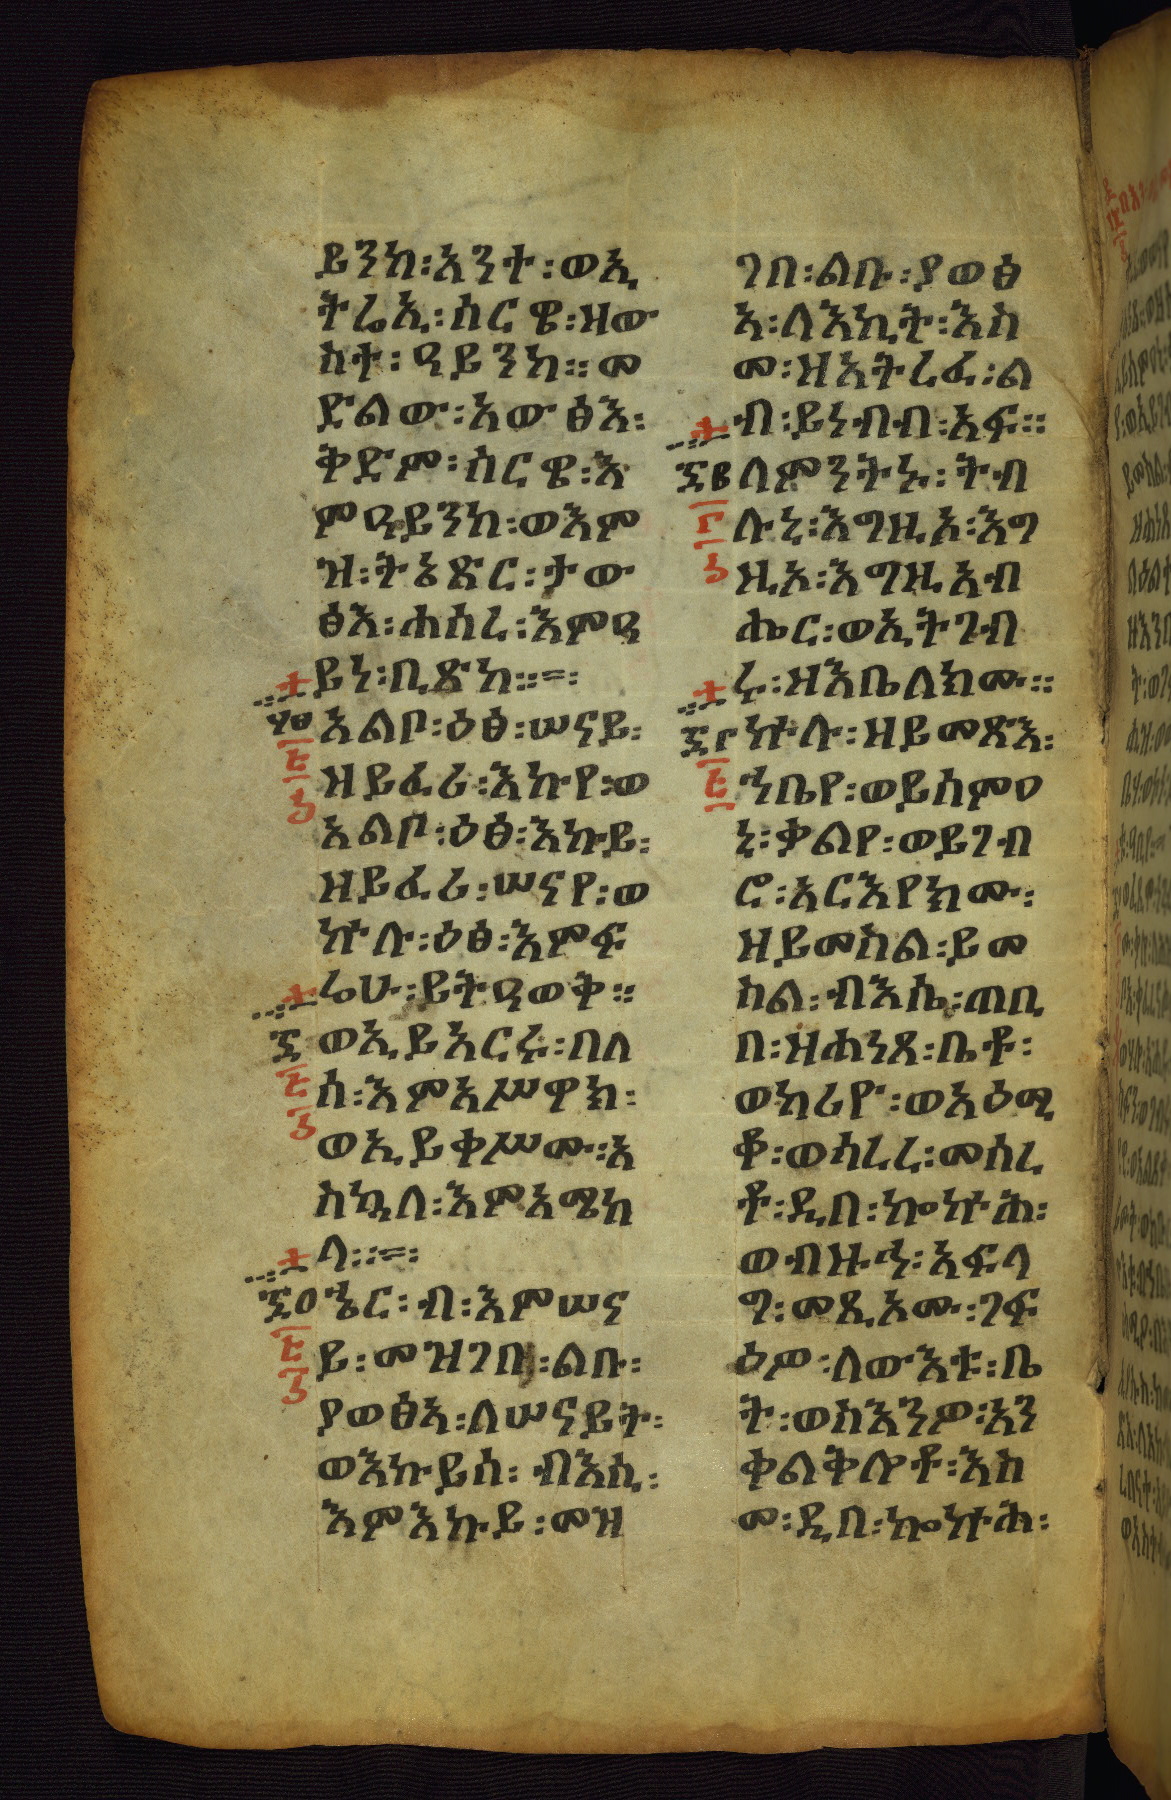 ይንከ፡አንተ፡ወኢ
ትሬኢ፡ሰርዌ፡ዘው
ስተ፡ዓይንከ።መ
ድልው፡አውፅእ፡
ቅድመ፡ሰርዌ፡እ
ምዓይንከ፡ወእም
ዝ፡ትኔጽር፡ታው
ፅእ፡ሐሰረ፡እምዓ
ይነ፡ቢጽከ።=፡
፶፱ አልቦ፡ዕፅ፡ሠናይ፡
ዘይፈሪ፡እኩየ፡ወ
አልቦ፡ዕፅ፡እኩይ፡
ዘይፈሪ፡ሠናየ፡ወ
ኵሉ፡ዕፅ፡እምፍ
ሬሁ፡ይትዓወቅ።
፷ ወኢይአርሩ፡በለ
ሰ፡እምአሥዋክ፡
ወኢይቀሥሙ፡አ
ስኳለ፡እምአሜከ
ላ።=፡
፷፩ ኄር፡ብ፡እምሠና
ይ፡መዝገበ፡ልቡ፡
ያወፅእ፡ለሠናይት፡
ወእኩይሰ፡ብእሲ፡
እምእኩይ፡መዝ
ገበ፡ልቡ፡ያወፅ
እ፡ለእኪት፡እስ
መ፡ዘአትረፈ፡ል
ብ፡ይነብብ፡አፍ።
፷፪ ለምንትኑ፡ትብ
ሉኒ፡እግዚኦ፡እግ
ዚኦ፡እግዚአብ
ሔር፡ወኢትገብ
ሩ፡ዘእቤለክሙ።
፷፫ ኵሉ፡ዘይመጽእ፡
ኀቤየ፡ወይሰምዐ
ኒ፡ቃልየ፡ወይገብ
ሮ፡አርእየክሙ፡
ዘይመስል፡ይመ
ስል፡ብእሴ፡ጠቢ
በ፡ዘሐነጸ፡ቤቶ፡
ወከረየ፡ወአዕሚ
ቆ፡ወሳረረ፡መሰረ
ቶ፡ዲበ፡ኰኵሕ፡
ወብዙኀ፡አፍላ
ግ፡መጺኦሙ፡ገፍ
ዕዎ፡ለውእቱ፡ቤ
ት፡ወስእንዎ፡አን
ቀልቅሎቶ፡እስ
መ፡ዲበ፡ኰኵሕ፡